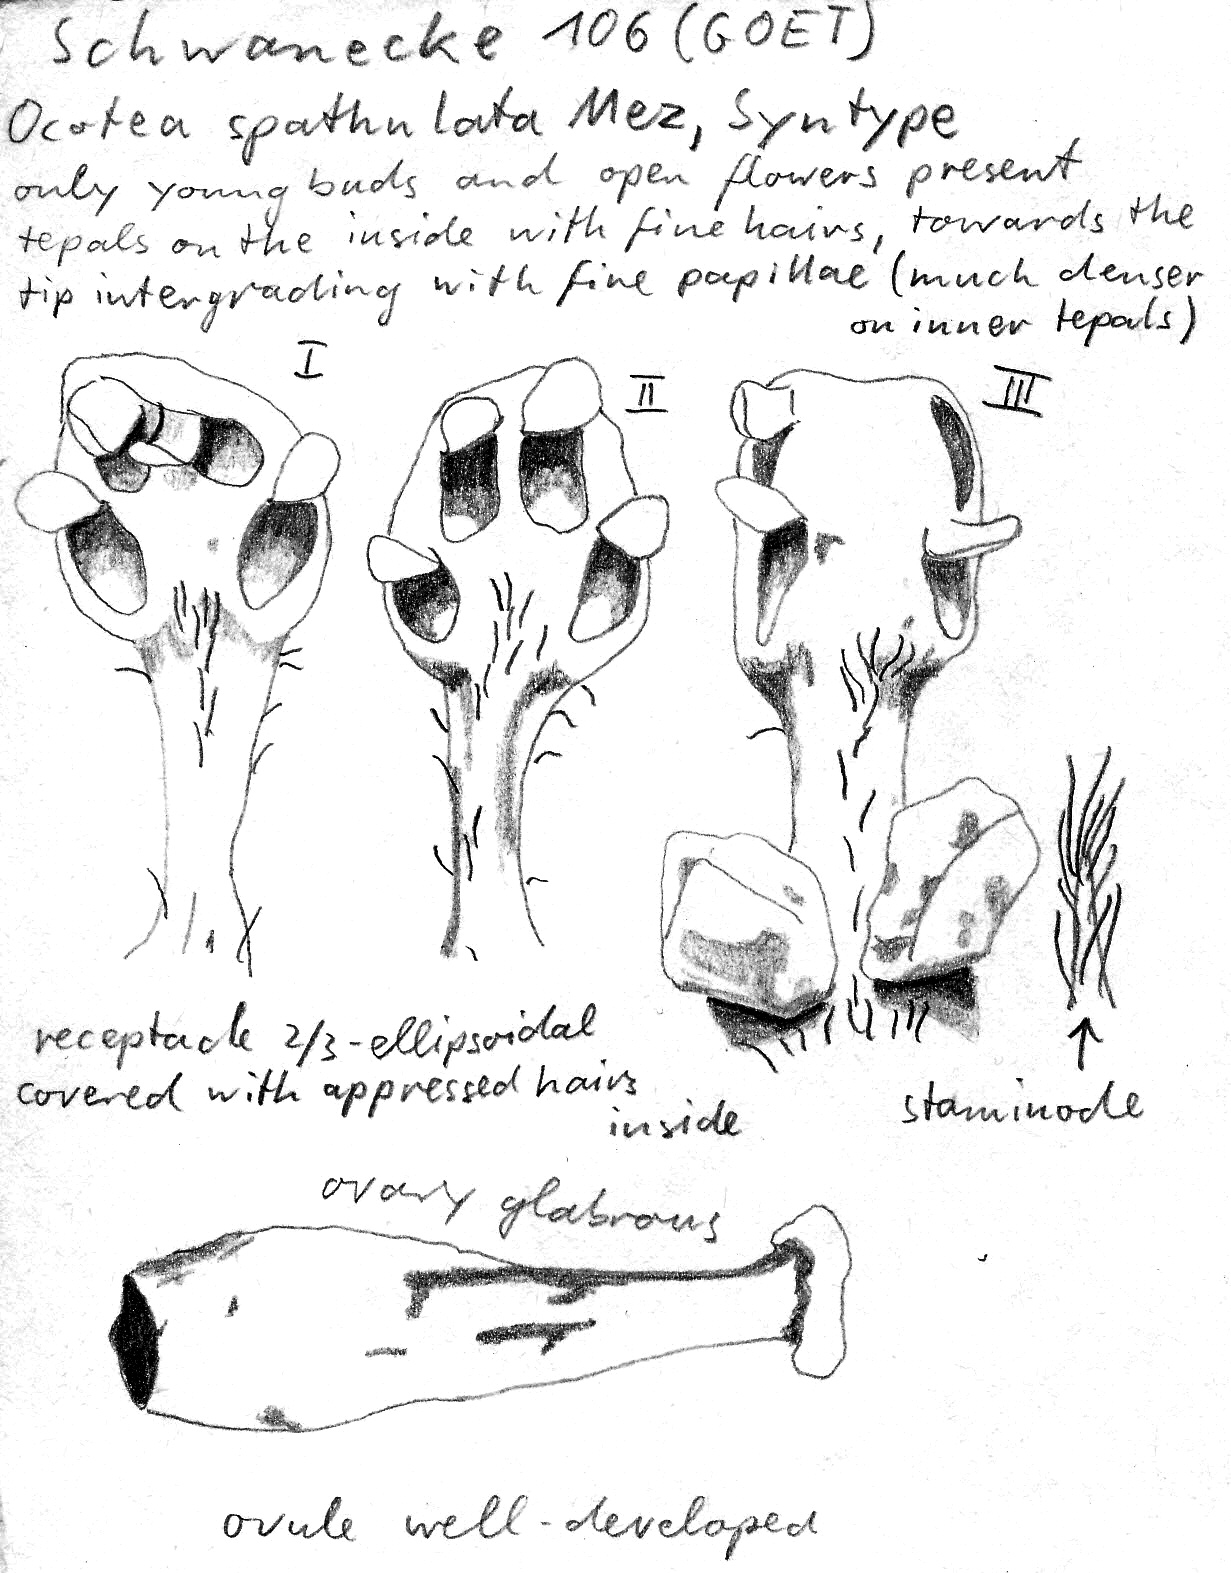 Schwanecke 106 (GOET)
Ocotea spathulata Mez, Syntype
only young buds and open flowers present
tepals on the inside with fine hairs, towards the
tip intergrading with fine papillae (much denser
on inner tepals)
I
II
III
receptacle 2/3-ellipsoidal
covered with appressed hairs
inside
staminode
ovary glabrous
ovule well-developed